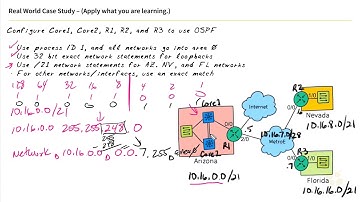 Real World Case Study – (Apply what you are learning.)
Configure Core1, Core2, R1, R2, and R3 to use OSPF
Use process ID 1, and all networks go into area 0
Use 32 bit exact network statements for loopbacks
Use /21 network statements for AZ, NV, and FL networks
For other networks/interfaces, use an exact match
128 64 32 16 8 4 2 1
1 1 1 1 1 0 0 0
10.16.0.0/21
10.16.0.0 255.255.248.0
Network 10.16.0.0 0.0.7.255 area 0
Core1
Core2
R1
Arizona
10.16.0.0/21
Internet
.5
10.16.7.0/28
MetroE
R2
2/0
.6
Nevada
10.16.8.0/21
R3
.7
Florida
10.16.16.0/21